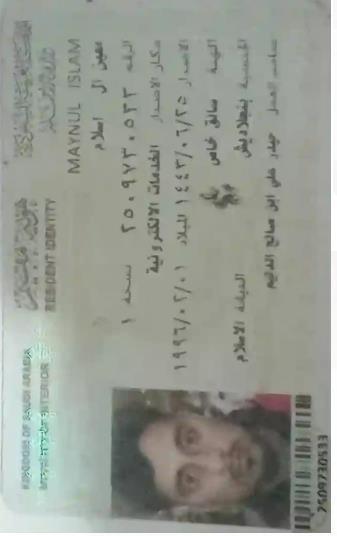 KINGDOM OF SAUDI ARABIA
MINISTRY OF INTERIOR
هوية مقيم
RESIDENT IDENTITY
MAYNUL ISLAM
معين ال اسلام
الرقم ٢٥٠٩٧٣٠٥٣٣ نسخة ١
مكان الاصدار الخدمات الالكترونية
الاصدار ١٤٤٣/٠٦/٢٥ الميلاد ١٩٩٦/٠٢/٠١
المهنة سائق خاص
الجنسية بنجلاديش الديانة الاسلام
صاحب العمل حيدر علي ابن صالح
2509730533